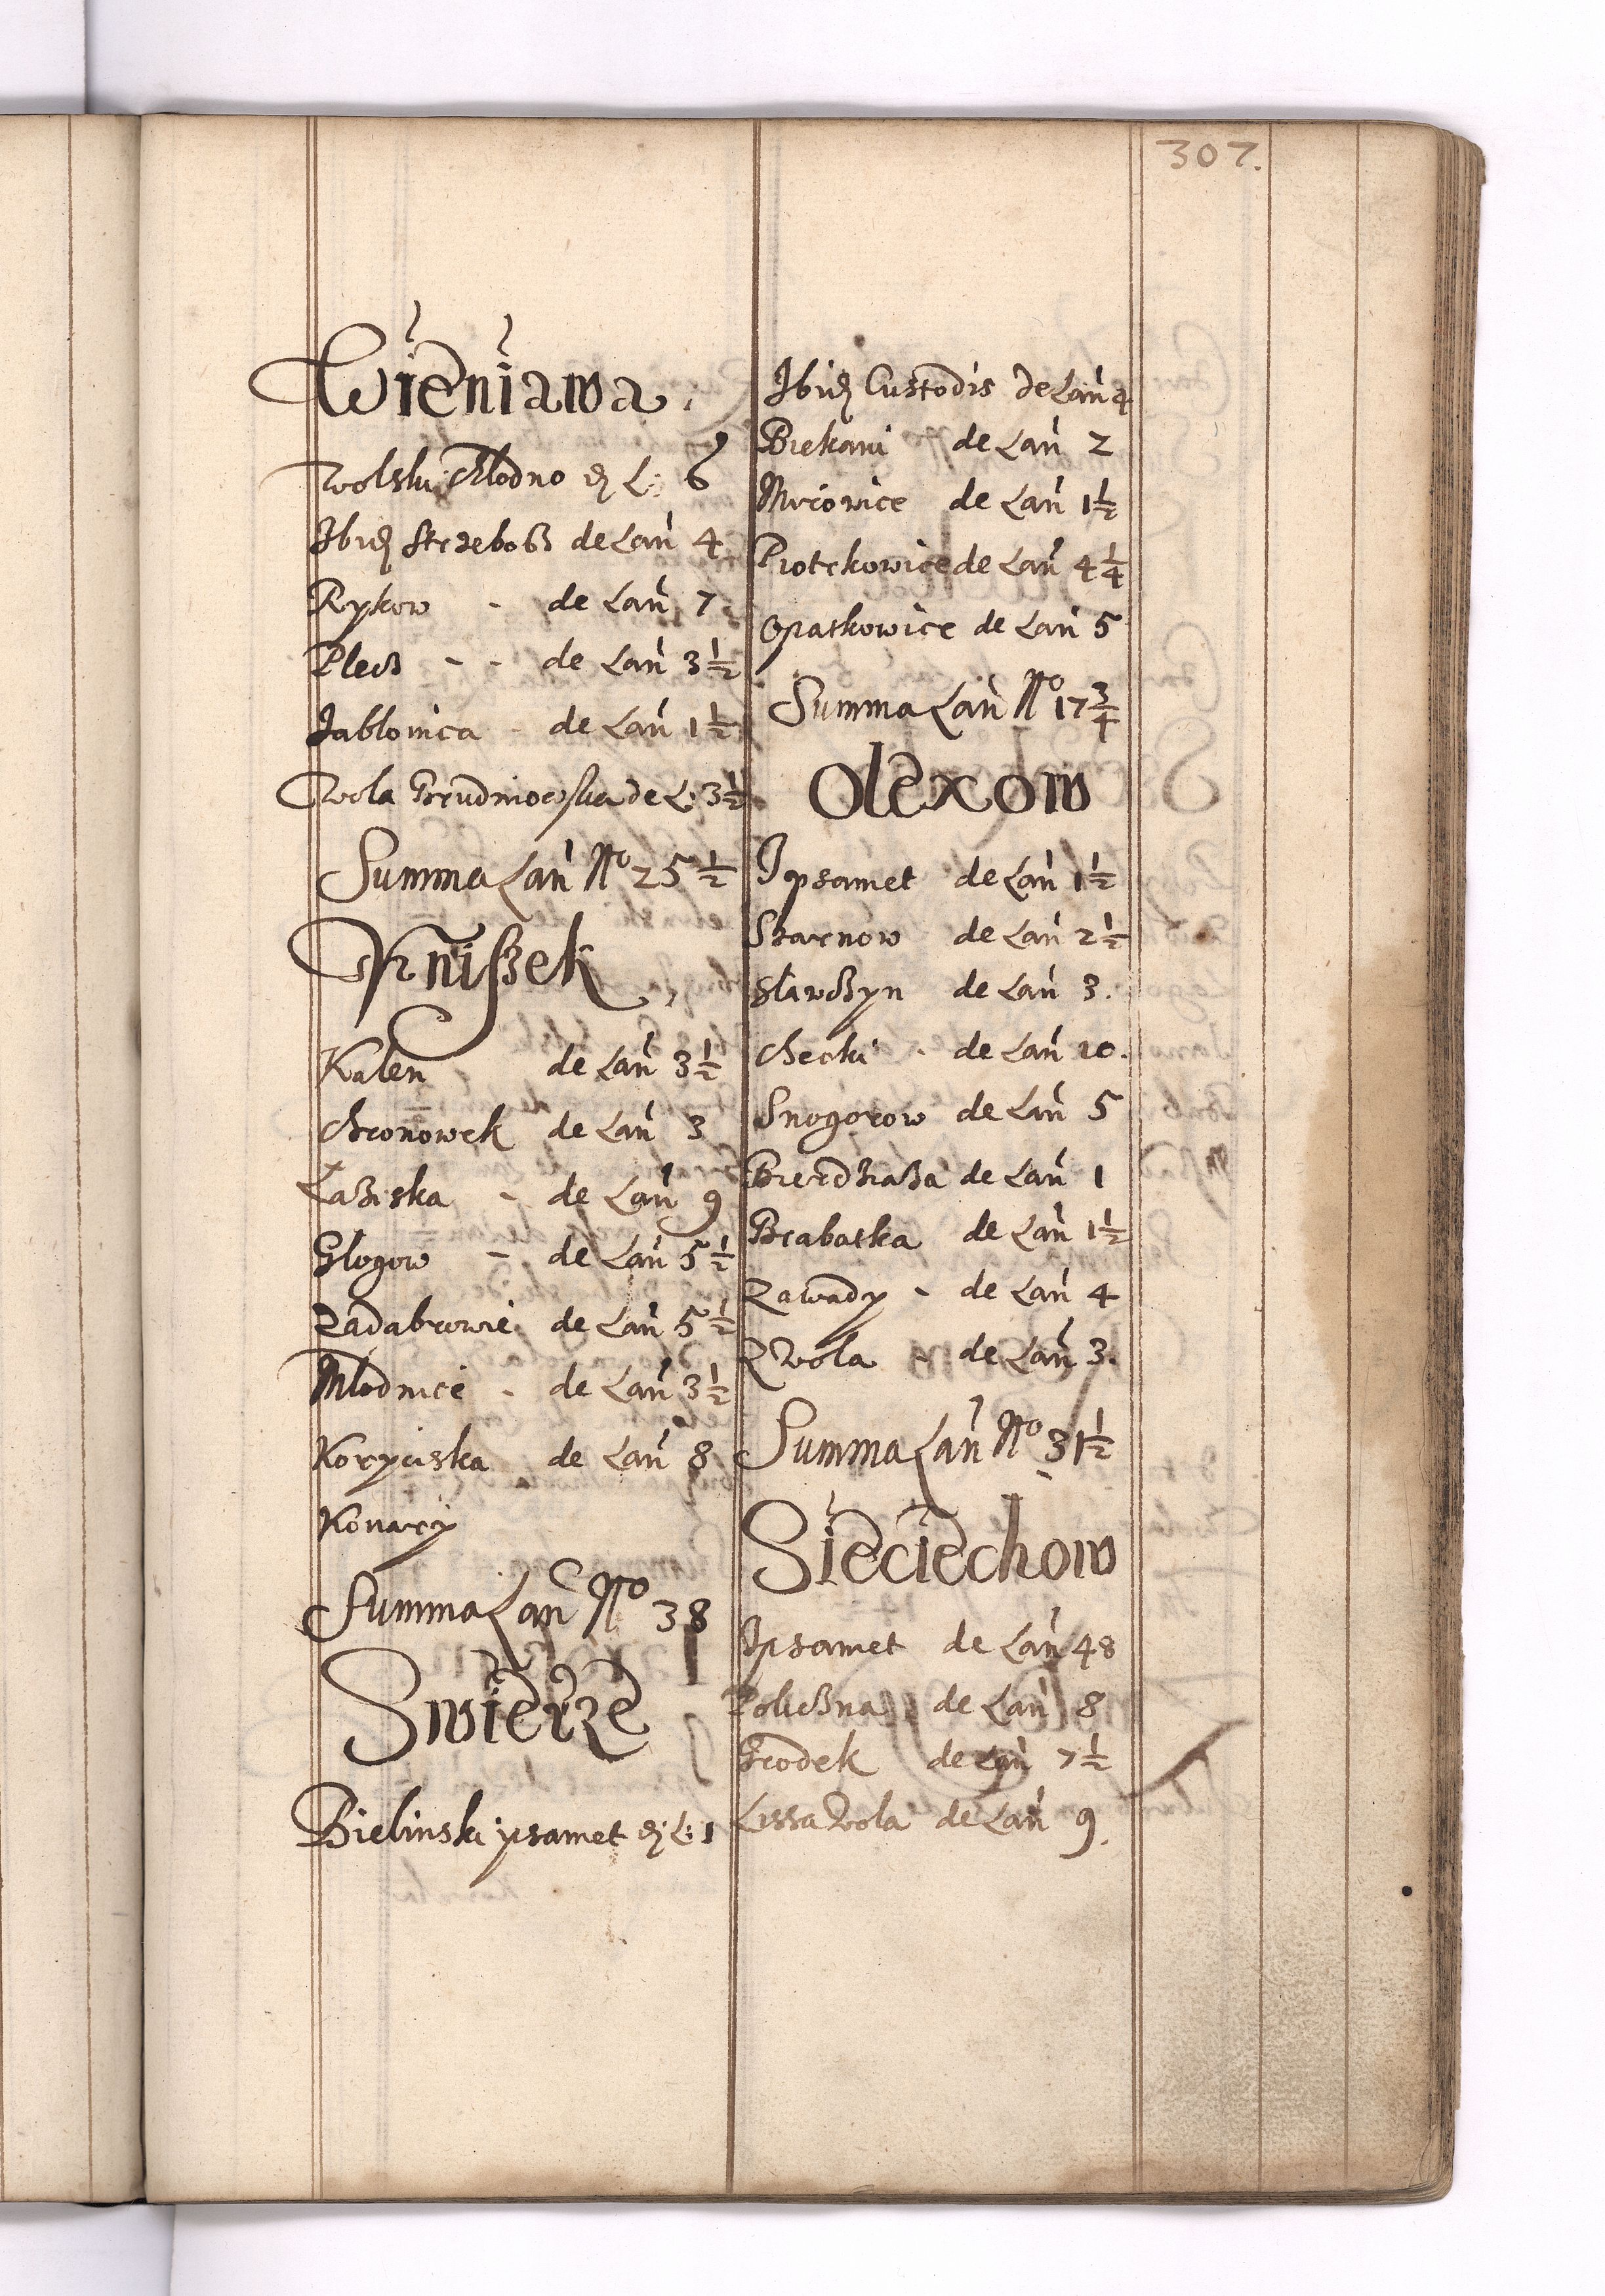 307.
Wieniawa.
Wolski Chlodno d L: 6
Ibid Strzebosz de Lan 4
Rykow - de Lan 7
Plecz - - de Lan 3 1/2
Jablonica - de Lan 1 1/2
Wola Grudniowska de L: 3 1/2
Summa Lan No 25 1/2
Kniszek
Kalen de Lan 3 1/2
Chronowek de Lan 3
Łaziska - de Lan 9
Glogow - de Lan 5 1/2
Zadabrowie de Lan 5 1/2
Mlodnice - de Lan 3 1/2
Koryciska de Lan 8
Konary
Summa Lan No 38
Swierze
Bielinski ipsamet d L: 1
Ibid Custodis de Lan 4
Biekani de Lan 2
Mrowice de Lan 1 1/2
Piotrkowice de Lan 4 1/4
Opatkowice de Lan 5
Summa Lan No 17 3/4
Olexow
Ipsamet de Lan 1 1/2
Sarnow de Lan 2 1/2
Slawczyn de Lan 3.
Chechi - de Lan 10.
Snogorow de Lan 5
de Lan 1
Brabaska de Lan 1 1/2
Zawady - de Lan 4
Zwola - de Lan 3.
Summa Lan No 31 1/2
Sieciechow
Ipsamet de Lan 48
Policzna de Lan 8
Grodek de Lan 7 1/2
Lissa Wola de Lan 9.